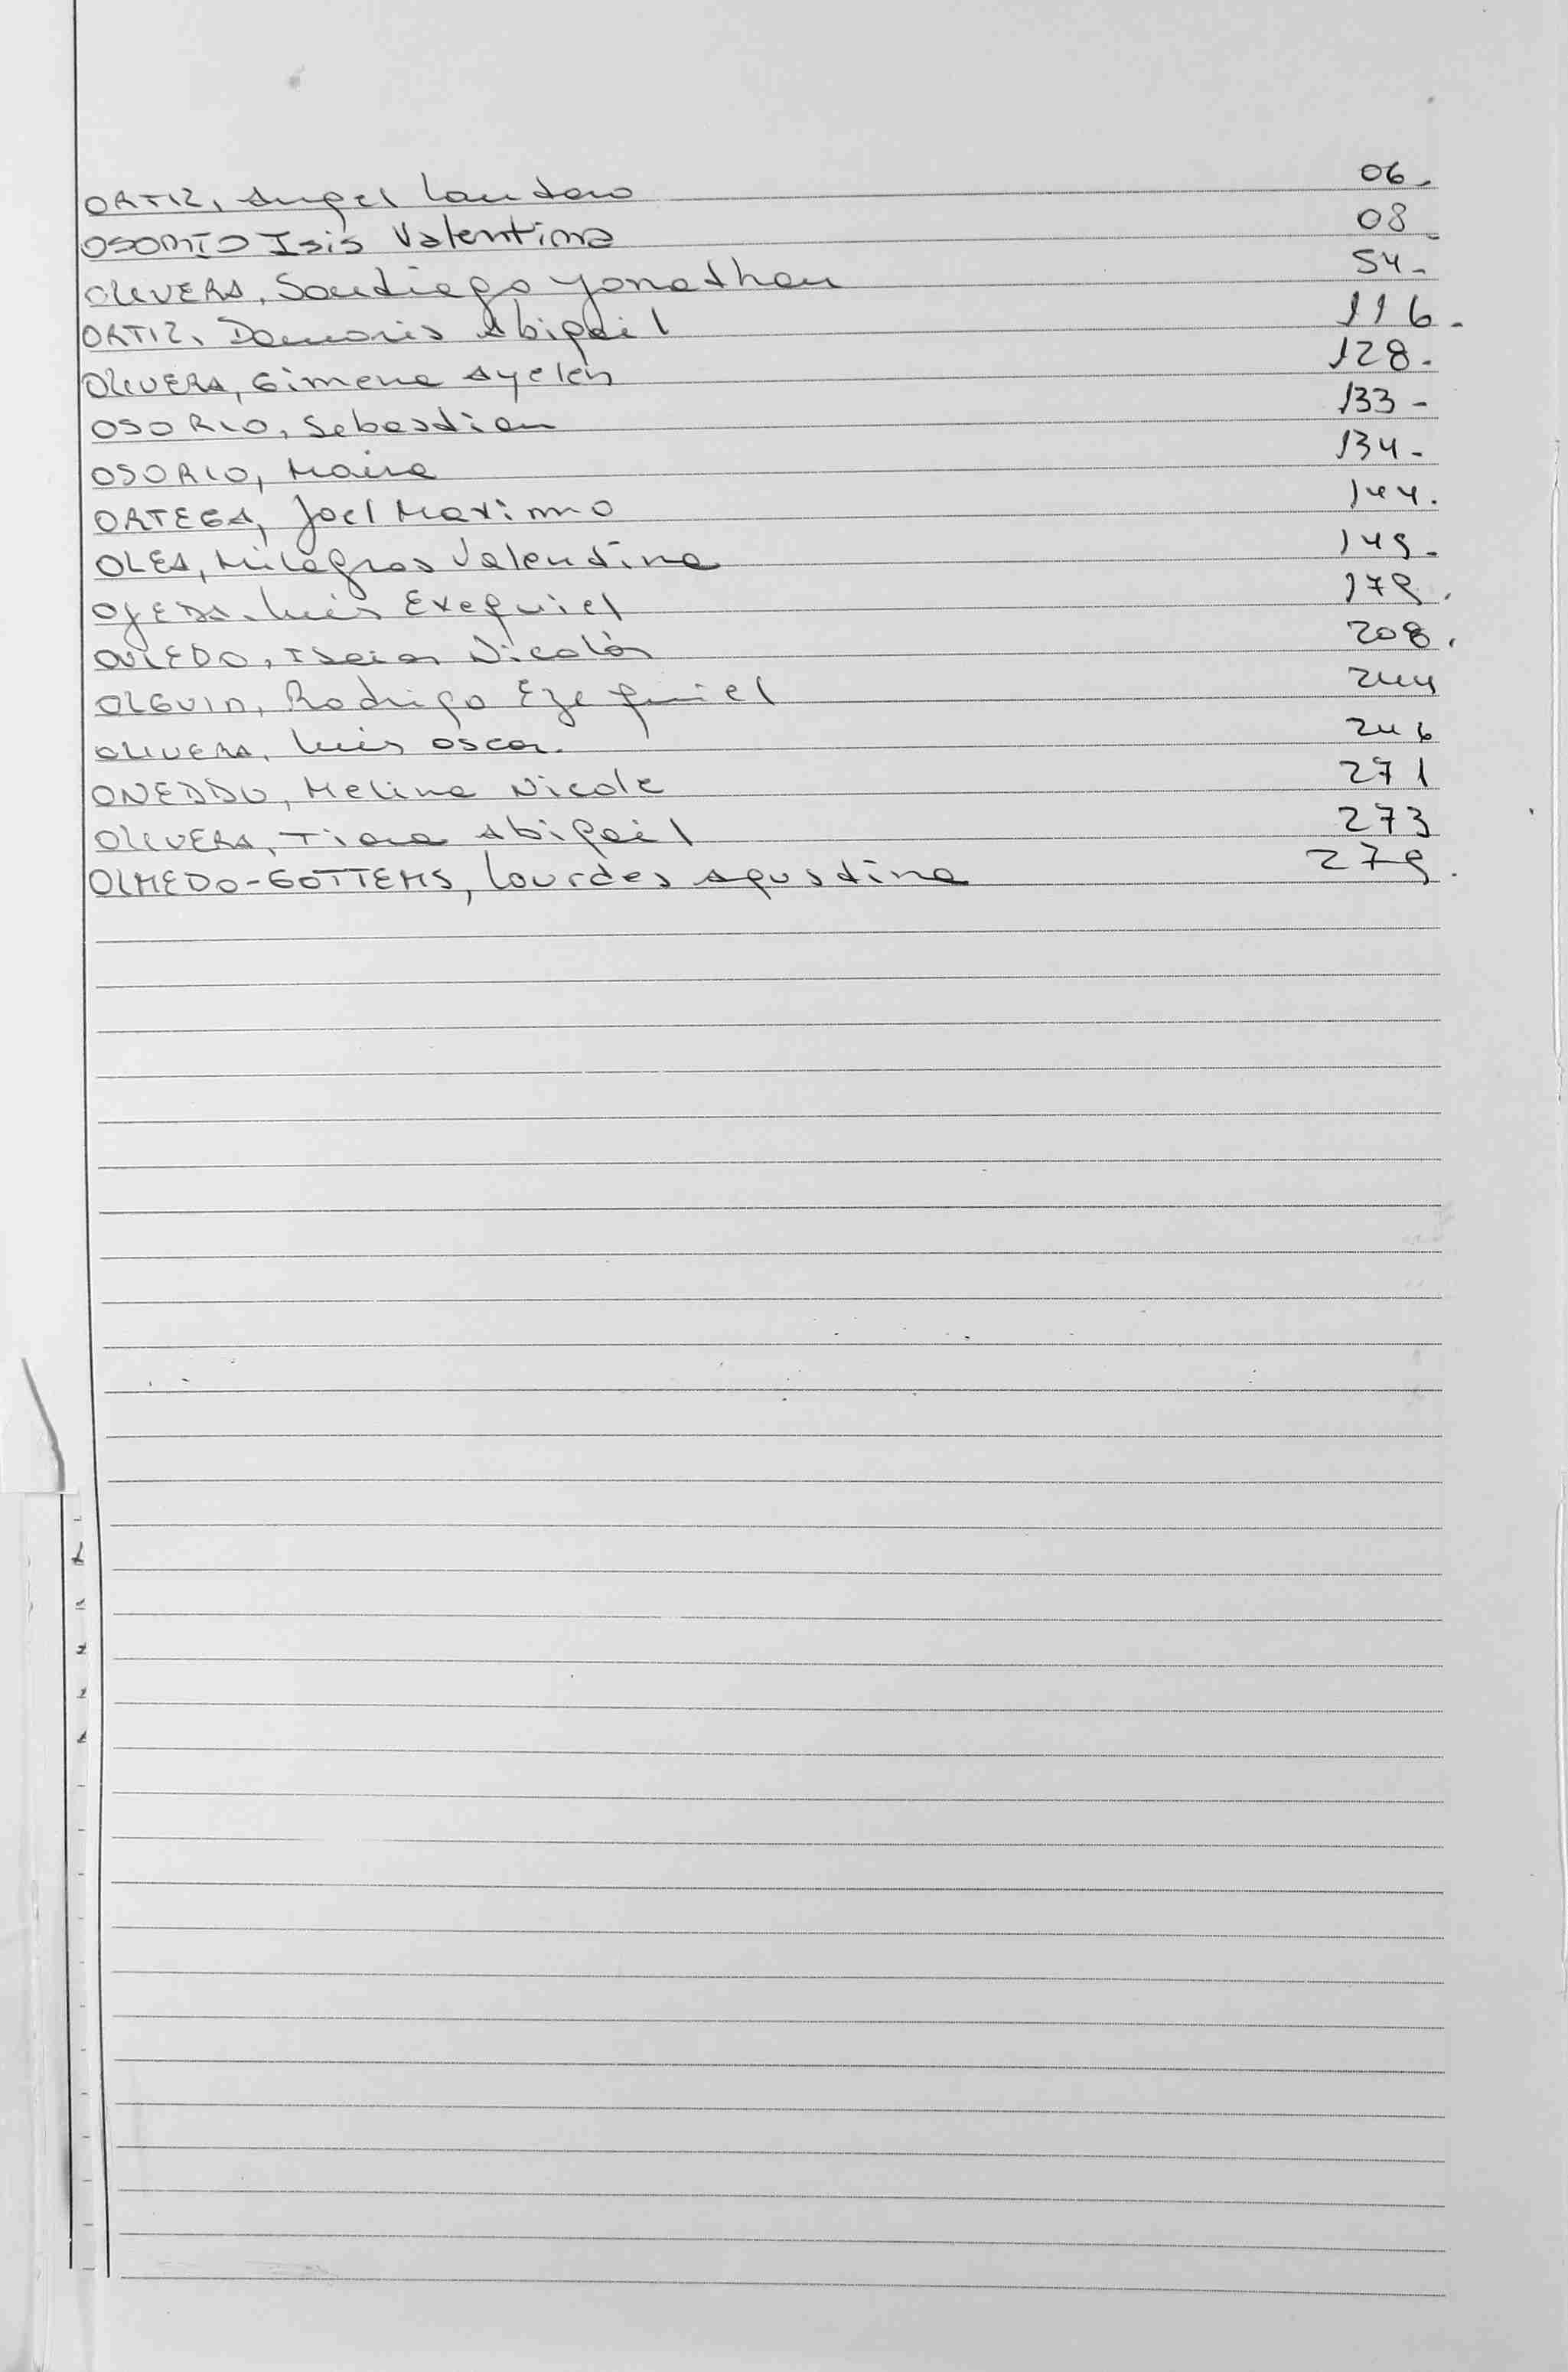 ORTIZ, Angel Lautaro 06-
OSORIO Isis Valentina 08-
OLIVERA, Santiago Yonathan 54-
ORTIZ, Damaris Abigail 116-
OLIVERA, Gimena Ayelén 128-
OSORIO, Sebastian 133-
OSORIO, Maira 134-
ORTEGA, Joel Maximo 144.
OLEA, Milagros Valentina 149-
OJEDA, Luis Exequiel 179.
OVIEDO, Isaias Nicolás 208.
OLGUIN, Rodrigo Ezequiel 244
OLIVERA, Luis Oscar. 246
ONEDDU, Melina Nicole 271
OLIVERA, Tiara Abigail 273
OLMEDO-GOTTEMS, Lourdes Agustina 279.